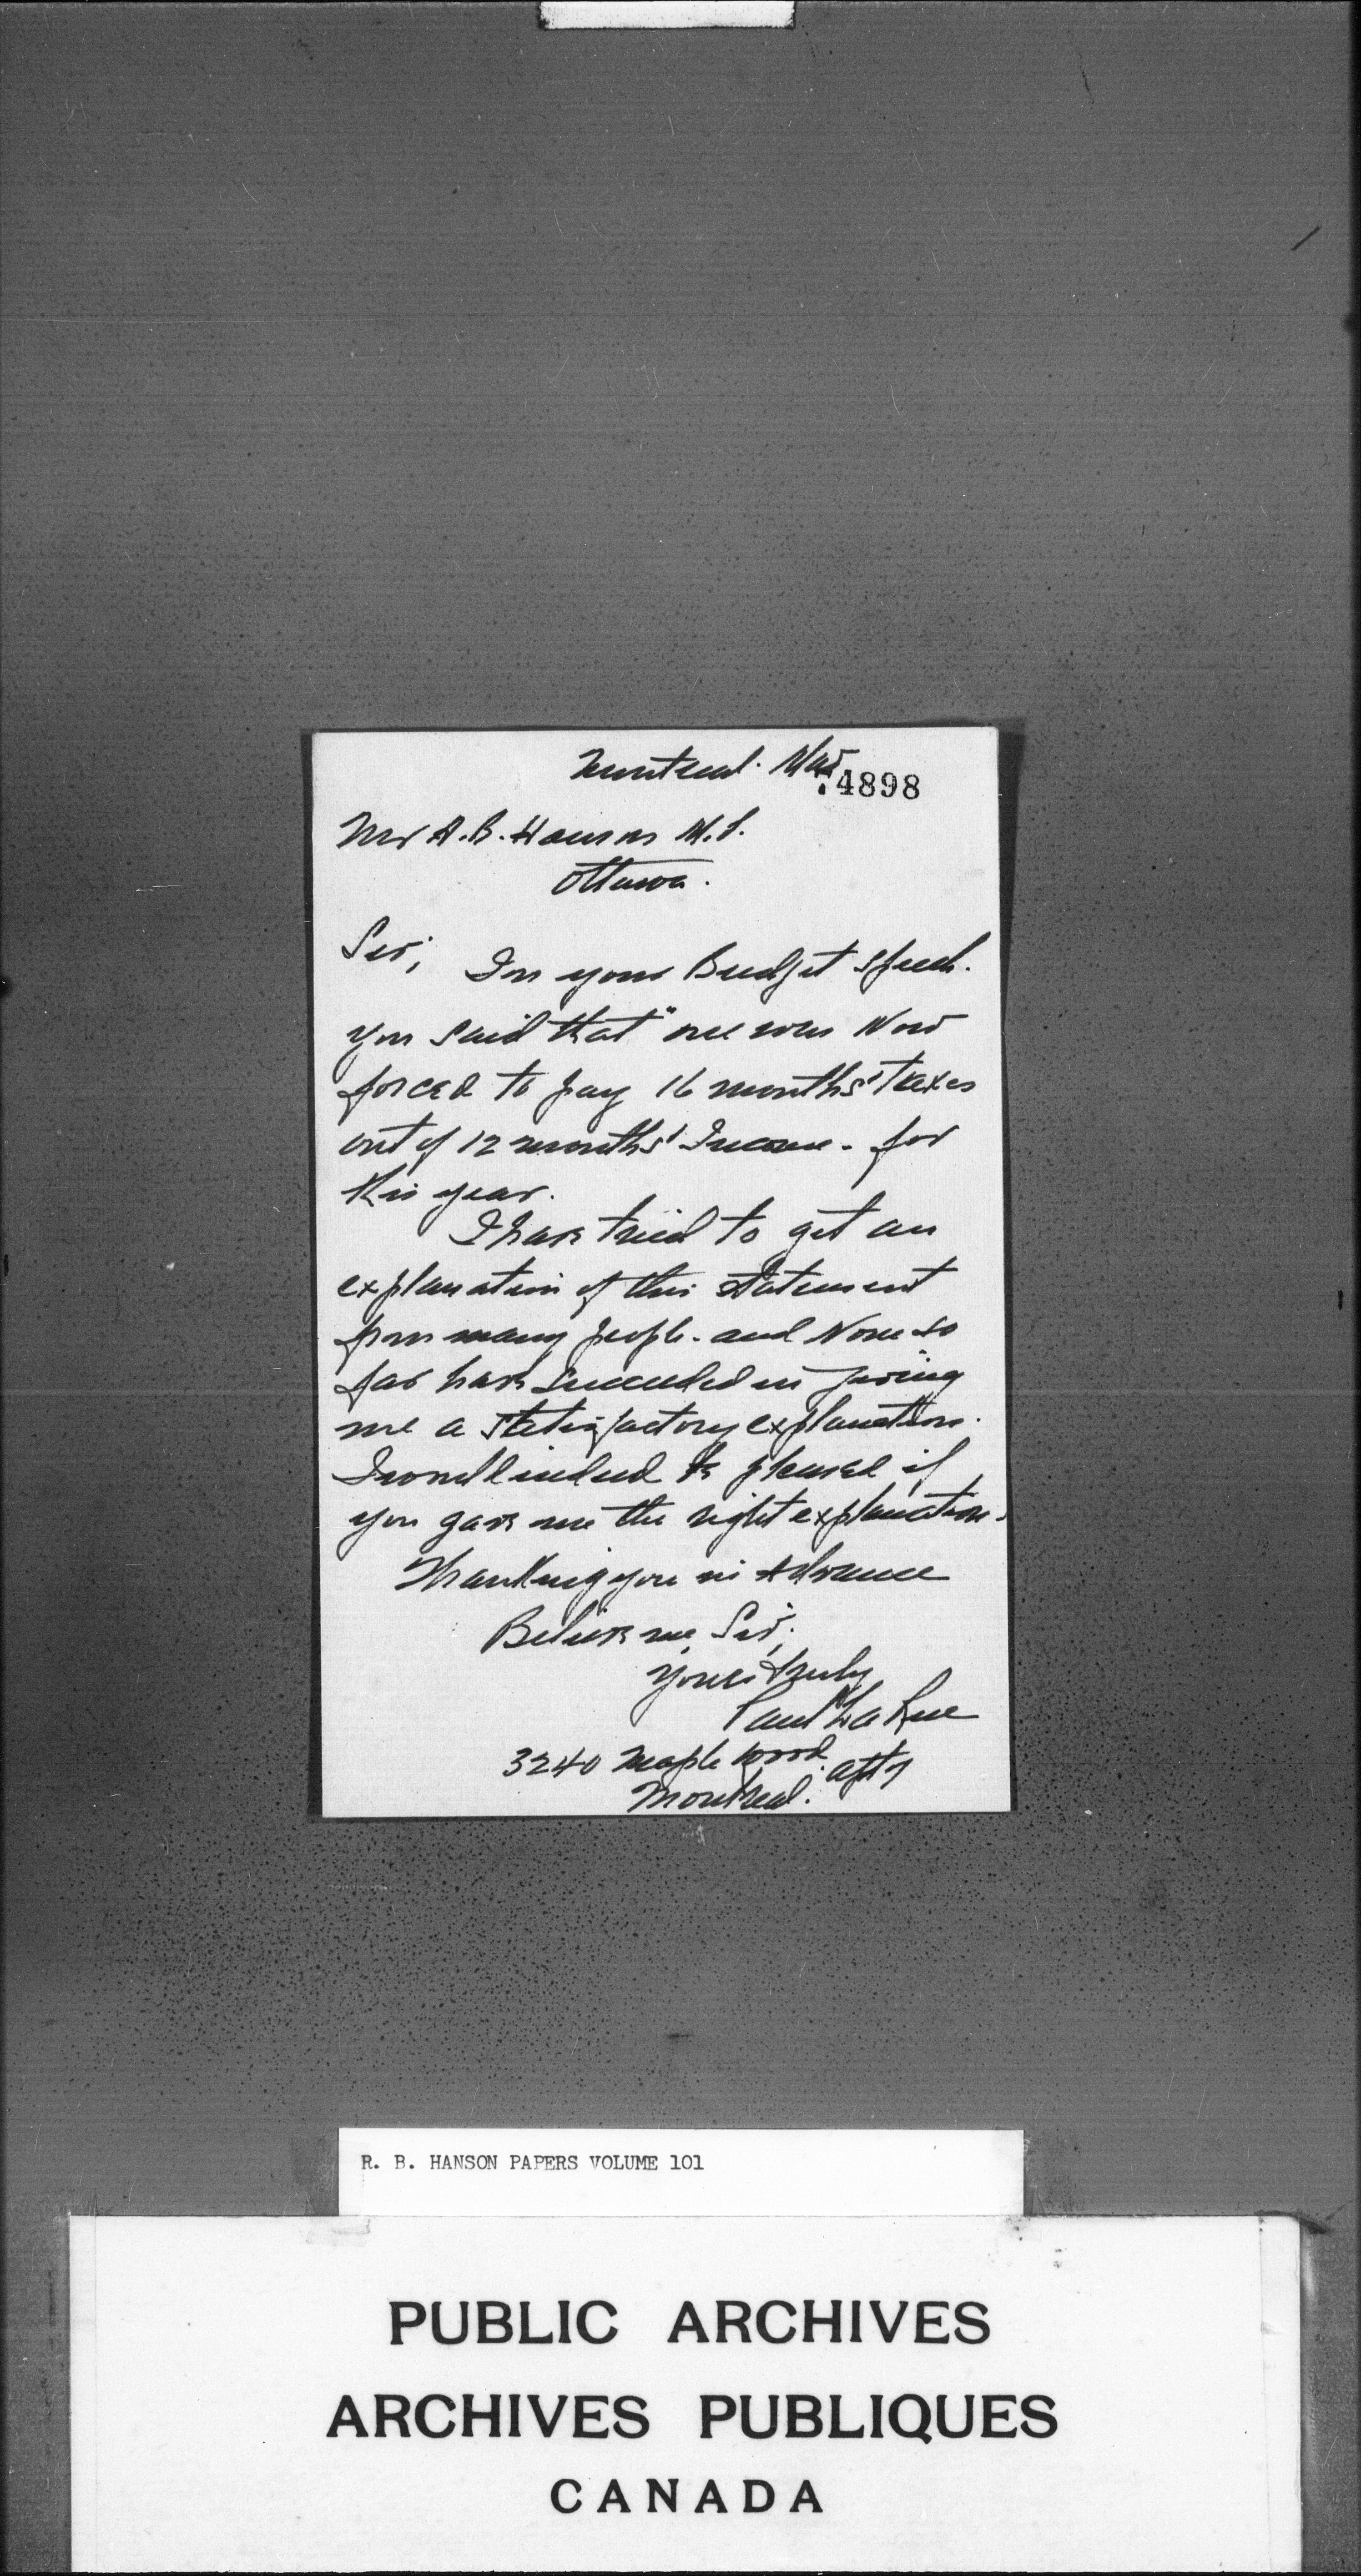 Montreal. Mar
74898
Mr A.B. Hanson M.P.
Ottawa.
Sir; In your Budget speech.
you said that "one was Now
forced to pay 16 months' taxes
out of 12 months' Income. for
this year.
I have tried to get an
explanation of this statement
from many people. and None so
far have succeeded in giving
me a statisfactory explanation.
I would indeed be pleased if
you gave me the right explanation.
Thanking you in Advance
Believe me, Sir;
Yours truly
Paul La Rue
3240 Maplewood. apt 7
Montreal.
R. B. HANSON PAPERS VOLUME 101
PUBLIC ARCHIVES
ARCHIVES PUBLIQUES
CANADA